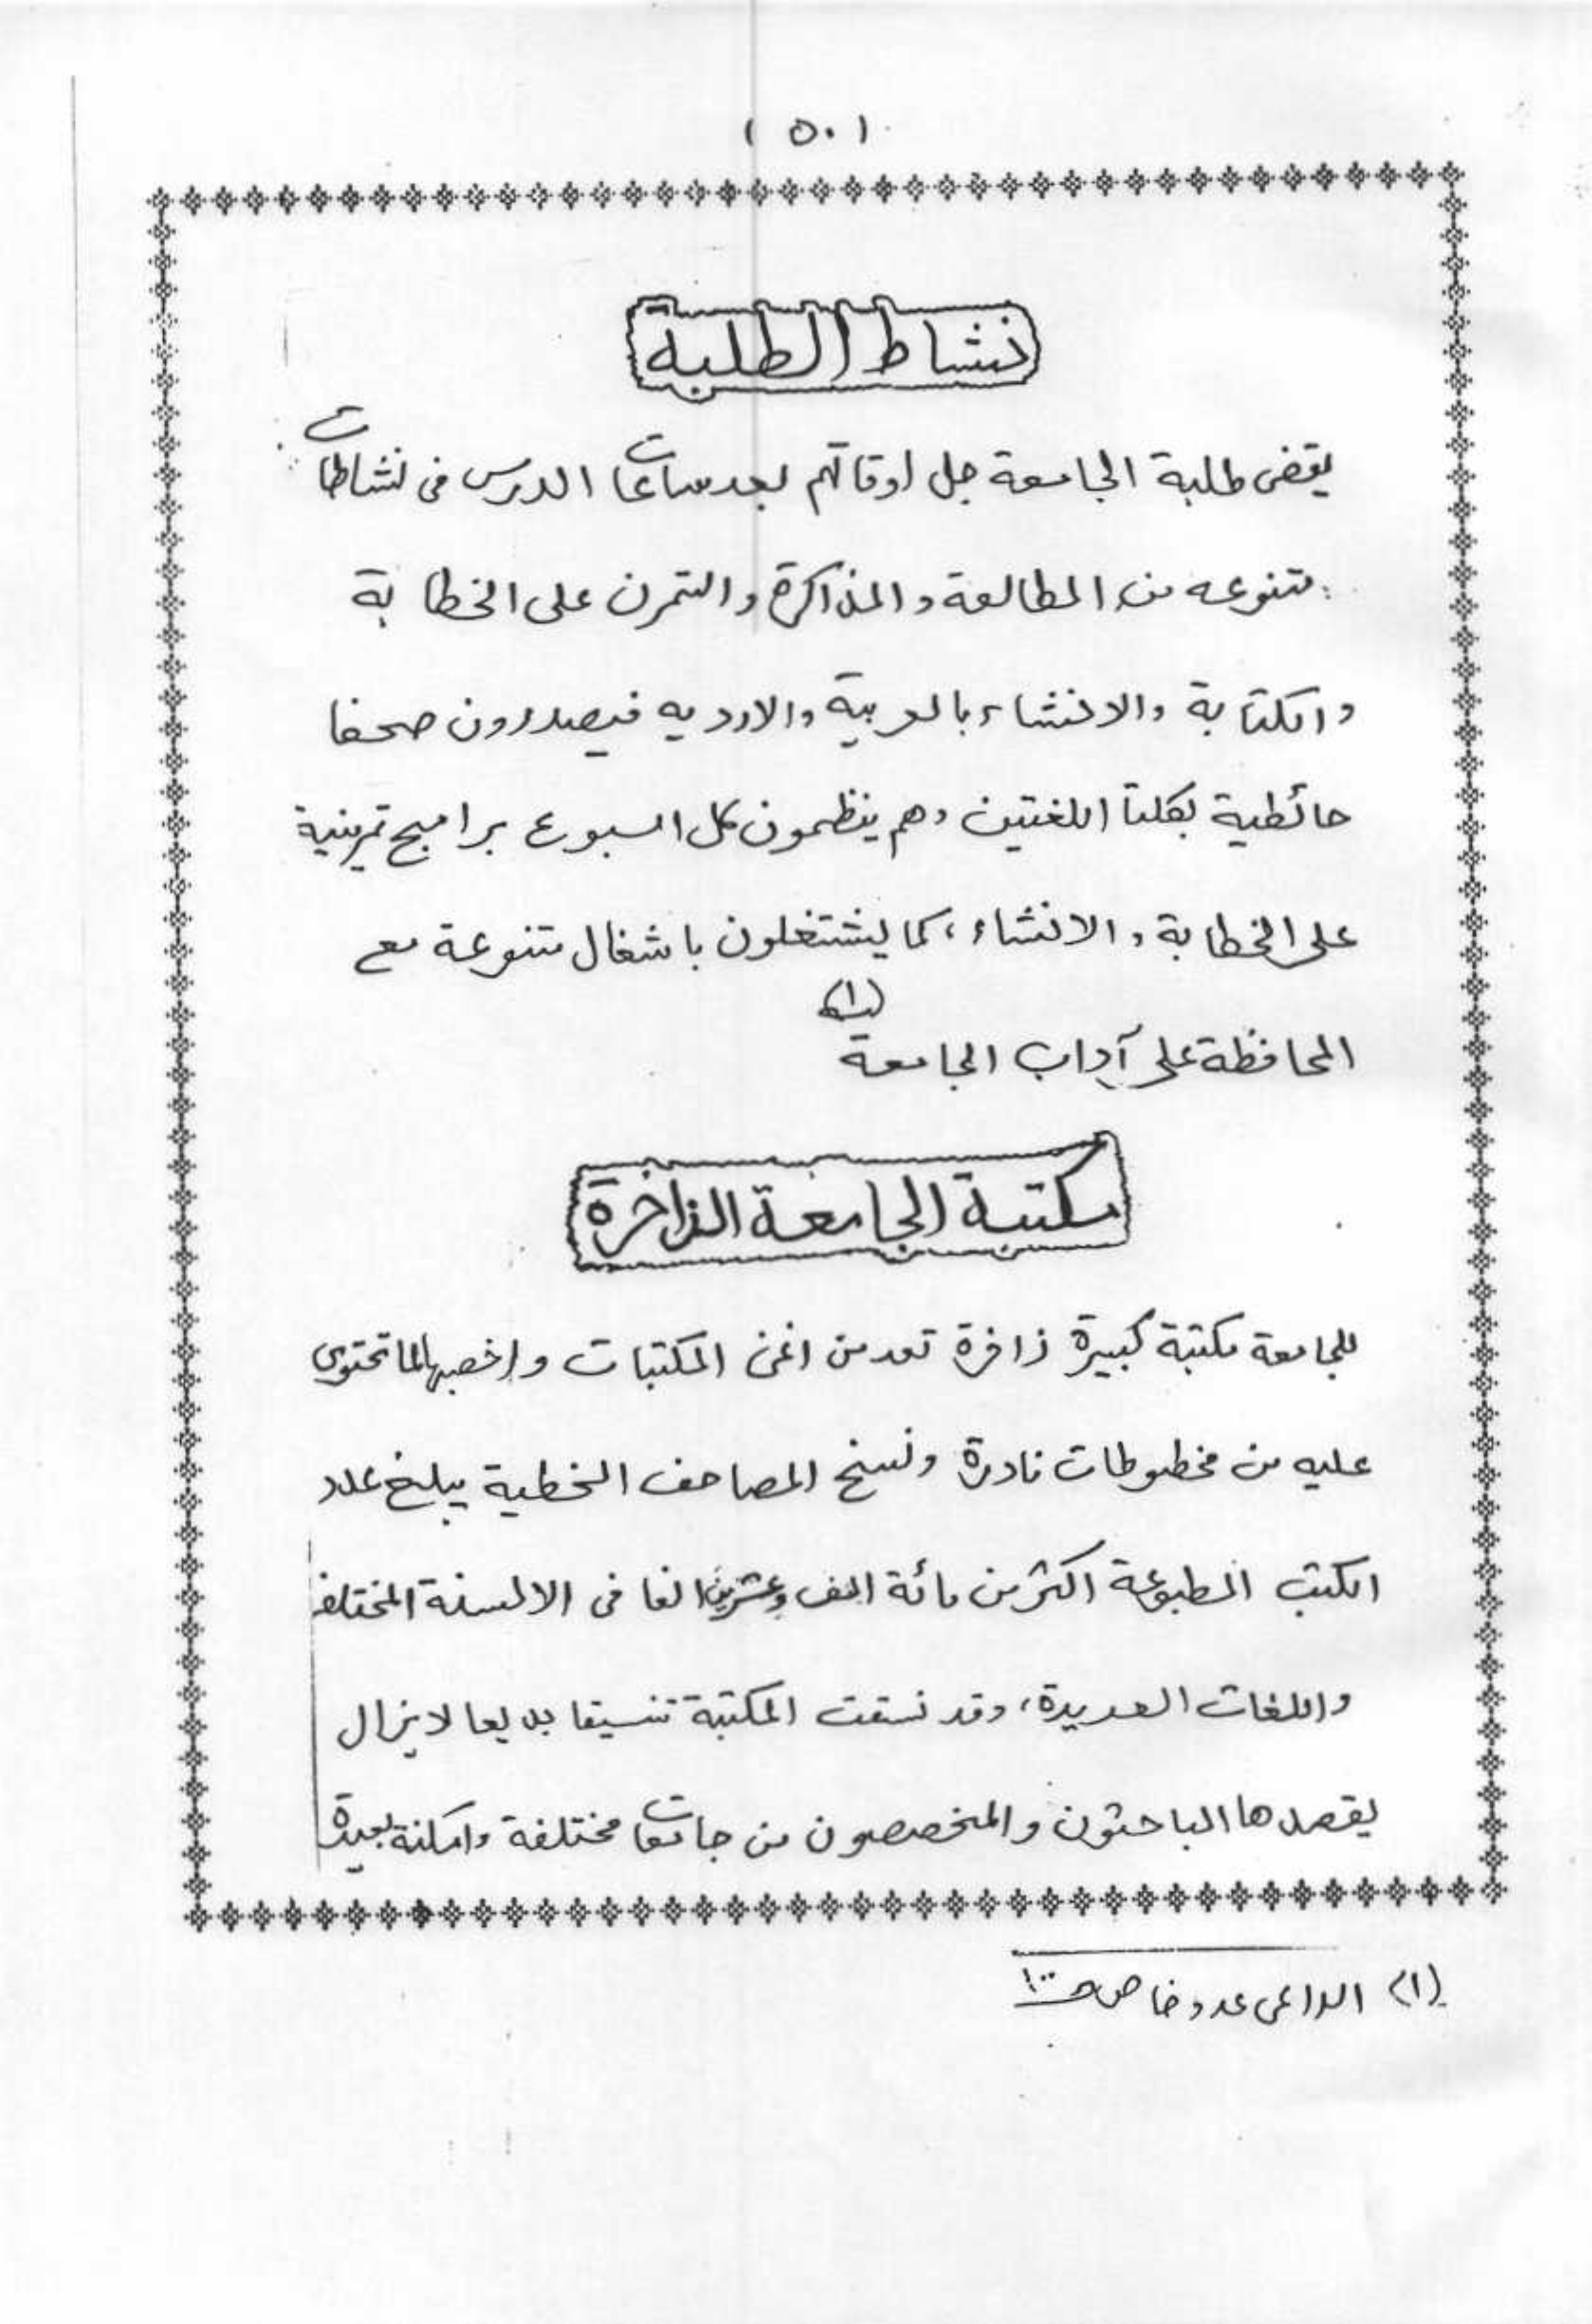 ( ٥٠ )
نشاط الطلبة
يقضى طلبة الجامعة جل اوقاتهم بعد ساعات الدرس فى نشاطات
متنوعه من المطالعة والمذاكرة والتمرن على الخطابة
والكتابة والانشاء بالعربية والارديه فيصدرون صحفا
حائطية بكلتا اللغتين وهم ينظمون كل اسبوع برامج تمرينية
على الخطابة والانشاء، كما يشتغلون باشغال متنوعة مع
المحافظة على آداب الجامعة (١)
مكتبة الجامعة الذاخرة
للجامعة مكتبة كبيرة ذاخرة تعد من اغنى المكتبات واخصبها لما تحتوى
عليه من مخطوطات نادرة ونسخ المصاحف الخطية يبلغ عدد
الكتب المطبوعة اكثر من مائة الف وعشرين الفا فى الالسنة المختلفة
واللغات العديدة، وقد نسقت المكتبة تنسيقا بديعا لا يزال
يقصدها الباحثون والمتخصصون من جامعات مختلفة وامكنة بعيدة
(١) الداعى عدد خاص صـ ١٠٠